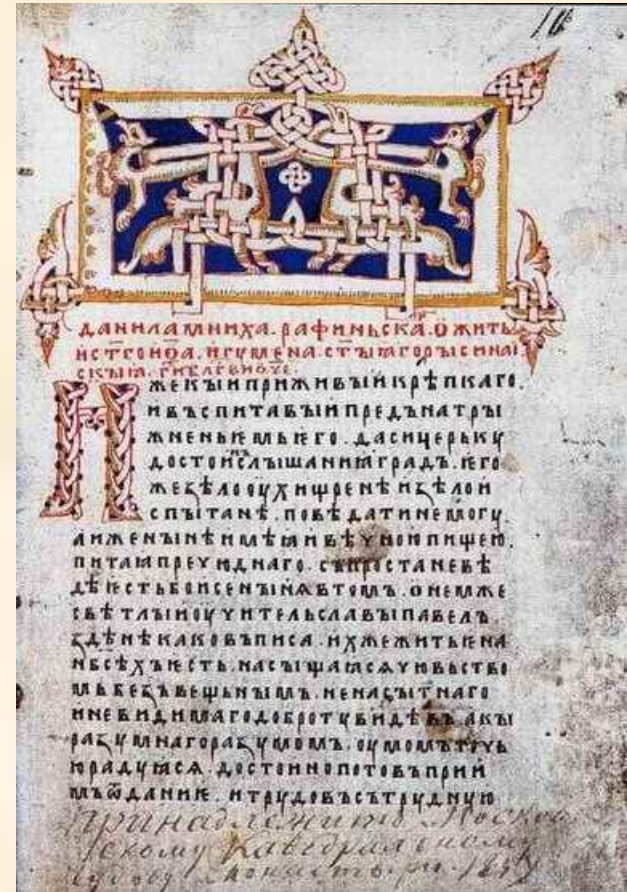 данила мниха. рафиньска. о жить
и ст҃го иѡа. игумена. ст҃ыꙗ горы синаи
скыꙗ. гн҃ бл҃гви ѿч҃е.
Иже кыи приживыи крѣпкаго.
и въспитавыи предъ натры
жненьѥмь ѥго. да сицерьку
достоинъ слышаниꙗ градъ. ѥго
же ѕѣло оухищренѣ и ѕѣло и
спытанѣ. повѣдати не могу.
спроста не вѣ
дѣ ѥсть бо и сен ын ꙗ в томь. о немже
свѣтлыи оучитель славы павелъ.
гдѣ нѣкако въписа. ихже житьѥ на
нб҃сѣхъ ѥсть. насыщаꙗсѧ чювьство
мь безъвещьнымь. ненасытнаго
и невидимаго доброту видѣвъ. акы
разумнаго разумомь. оумомь точь
ю радуꙗсѧ. достоино потовъ прии
мъ ѿданиѥ. и трудовъ сътрудную
Принадлежитъ Москов
скому Кафедральному
Чудову монастырю. 18